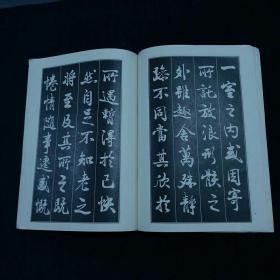 一室之内或因寄
所託放浪形骸之
外雖趣舍萬殊静
躁不同當其欣於
所遇蹔得於己快
然自足不知老之
將至及其所之既
惓情隨事遷感慨